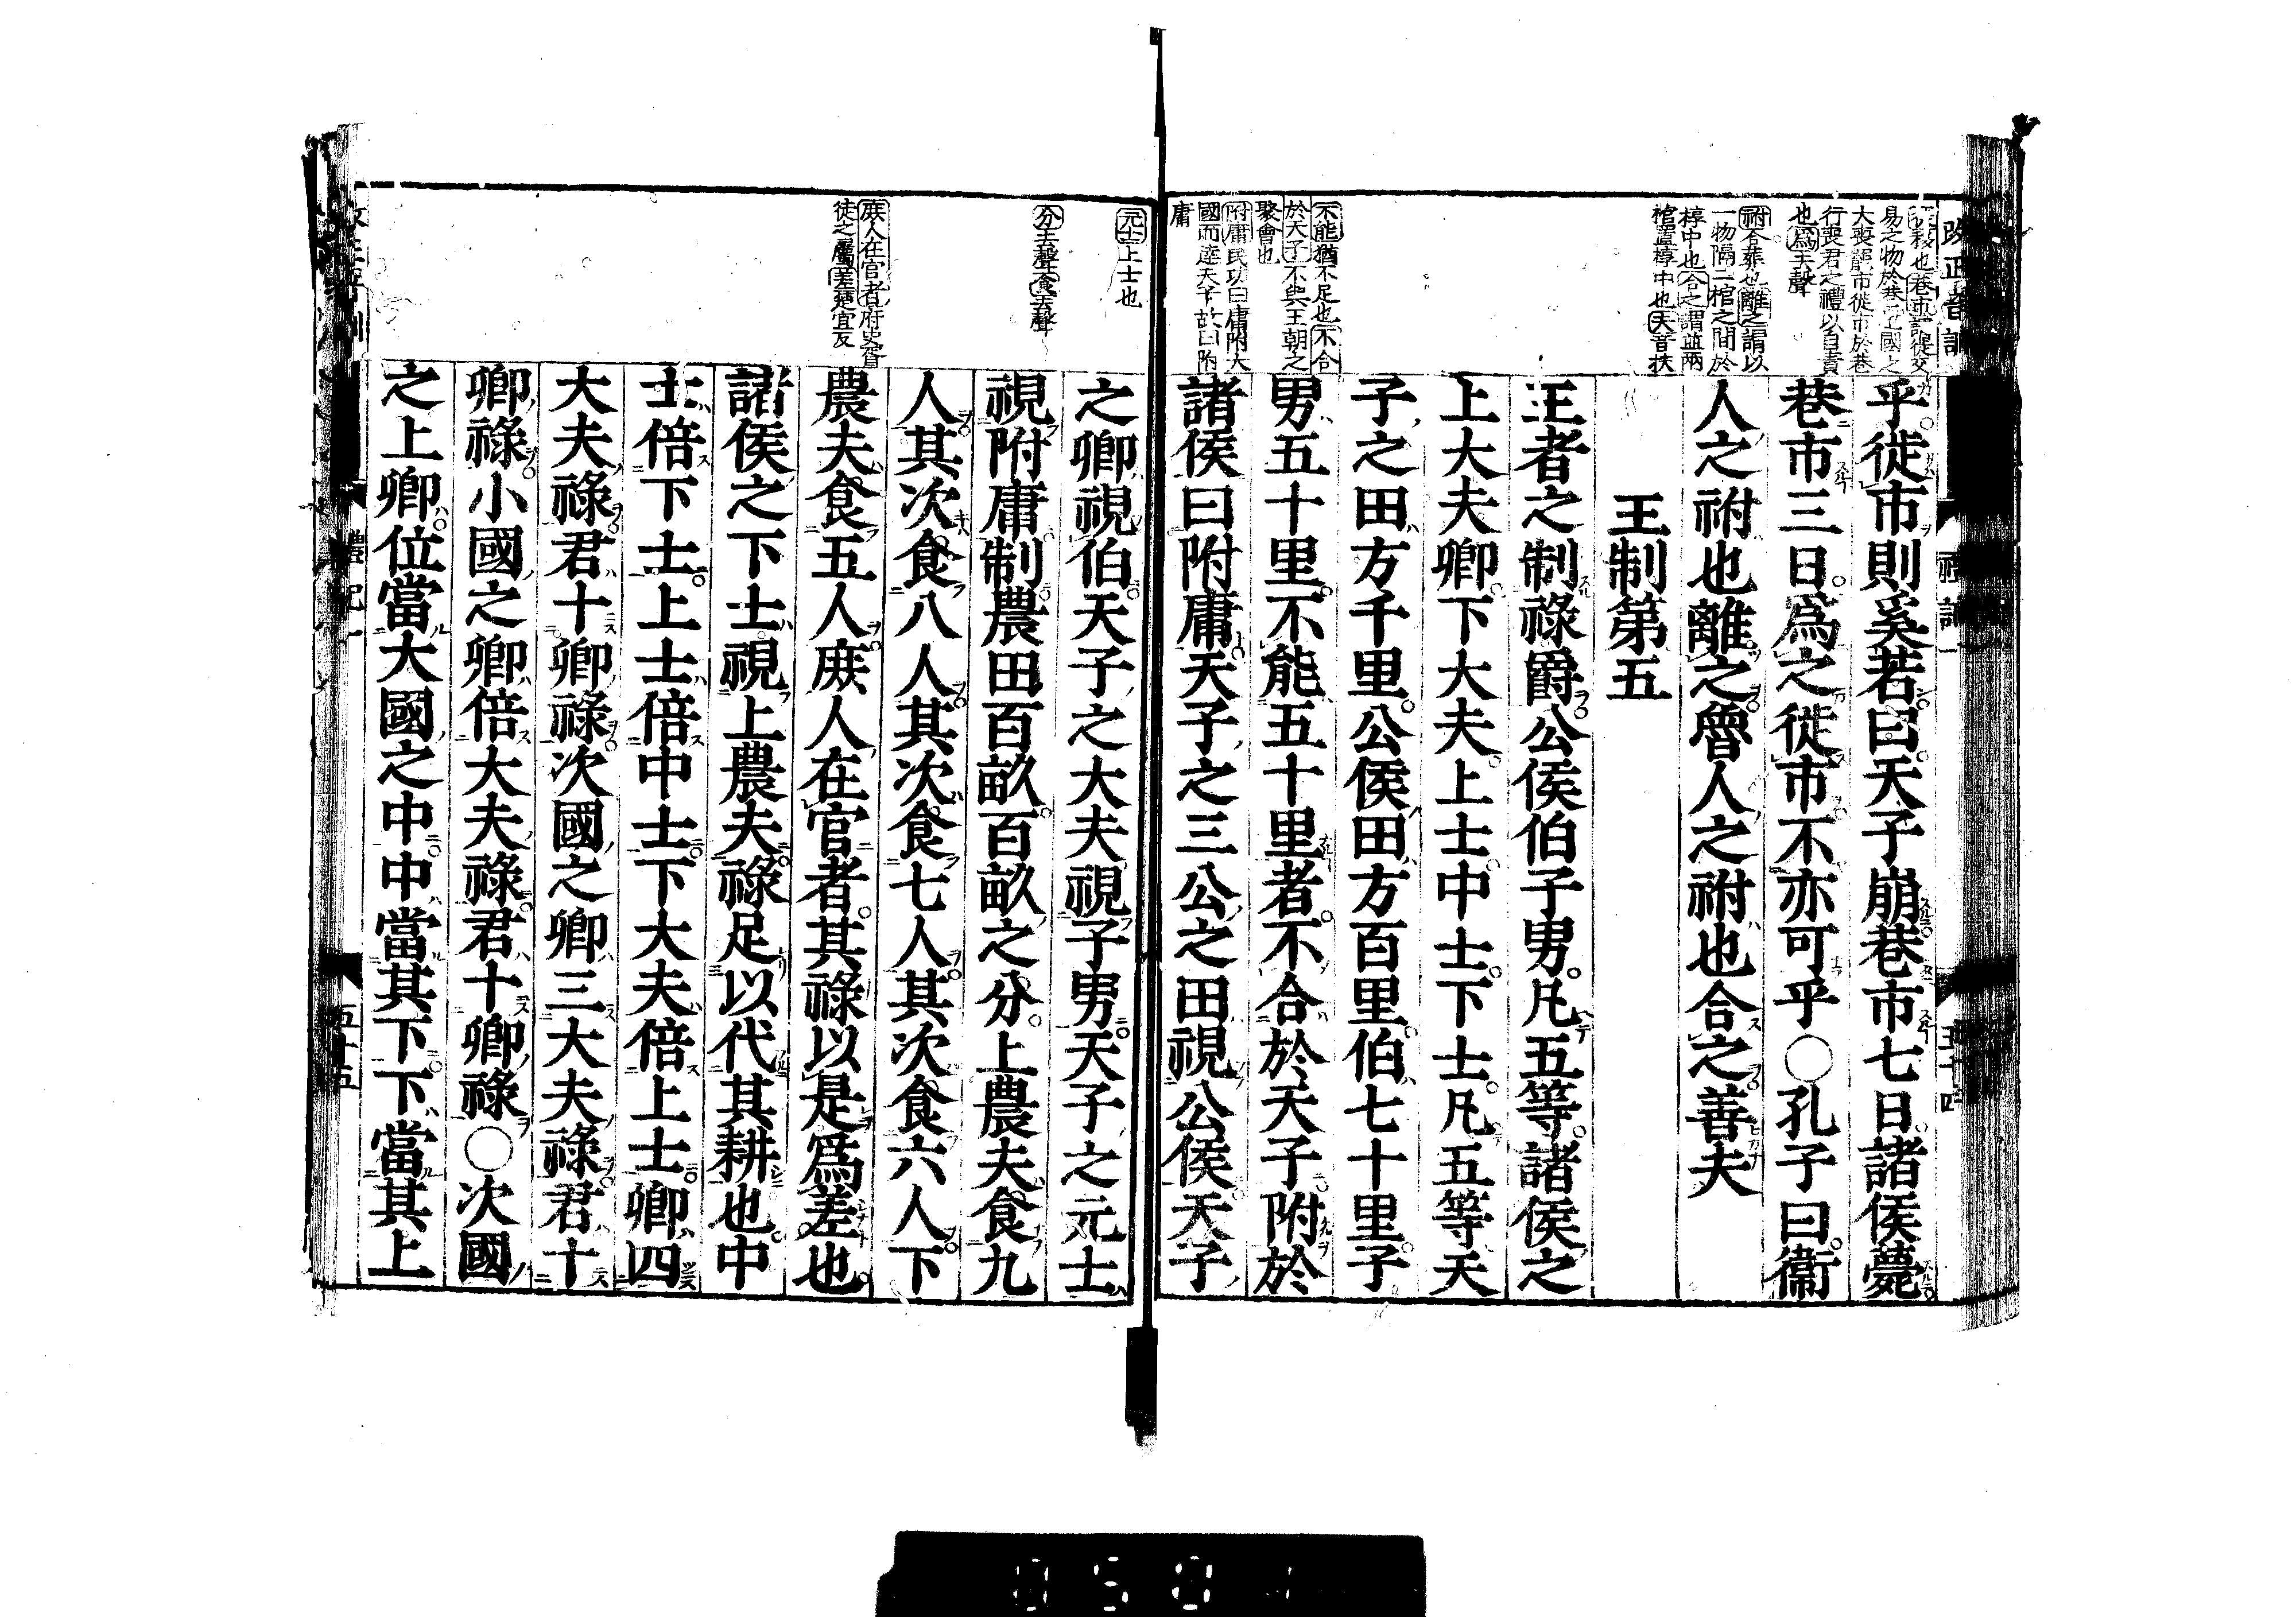 乎徙市則奚若曰天子崩巷市七日諸侯薨
巷市三日爲之徙市不亦可乎○孔子曰衞
人之祔也離之魯人之祔也合之善夫
王制第五
王者之制祿爵公侯伯子男凡五等諸侯之
上大夫卿下大夫上士中士下士凡五等天
子之田方千里公侯田方百里伯七十里子
男五十里不能五十里者不合於天子附於
諸侯曰附庸天子之三公之田視公侯天子
易之物於巷
大喪罷市徙市於巷
行喪君之禮以自責
也爲去聲
祔合葬也離之謂以
一物隔二棺之間於
椁中也合之謂並兩
棺置椁中也夫音扶
不能猶不足也不合
於天子不與王朝之
聚會也
附庸民功曰庸附大
國而達天子故曰附
庸
之卿視伯天子之大夫視子男天子之元士
視附庸制農田百畝百畝之分上農夫食九
人其次食八人其次食七人其次食六人下
農夫食五人庶人在官者其祿以是爲差也
諸侯之下士視上農夫祿足以代其耕也中
士倍下士上士倍中士下大夫倍上士卿四
大夫祿君十卿祿次國之卿三大夫祿君十
卿祿小國之卿倍大夫祿君十卿祿○次國
之上卿位當大國之中中當其下下當其上
元士上士也
分去聲食去聲
庶人在官者府史胥
徒之屬差楚宜反
禮記一
五十五